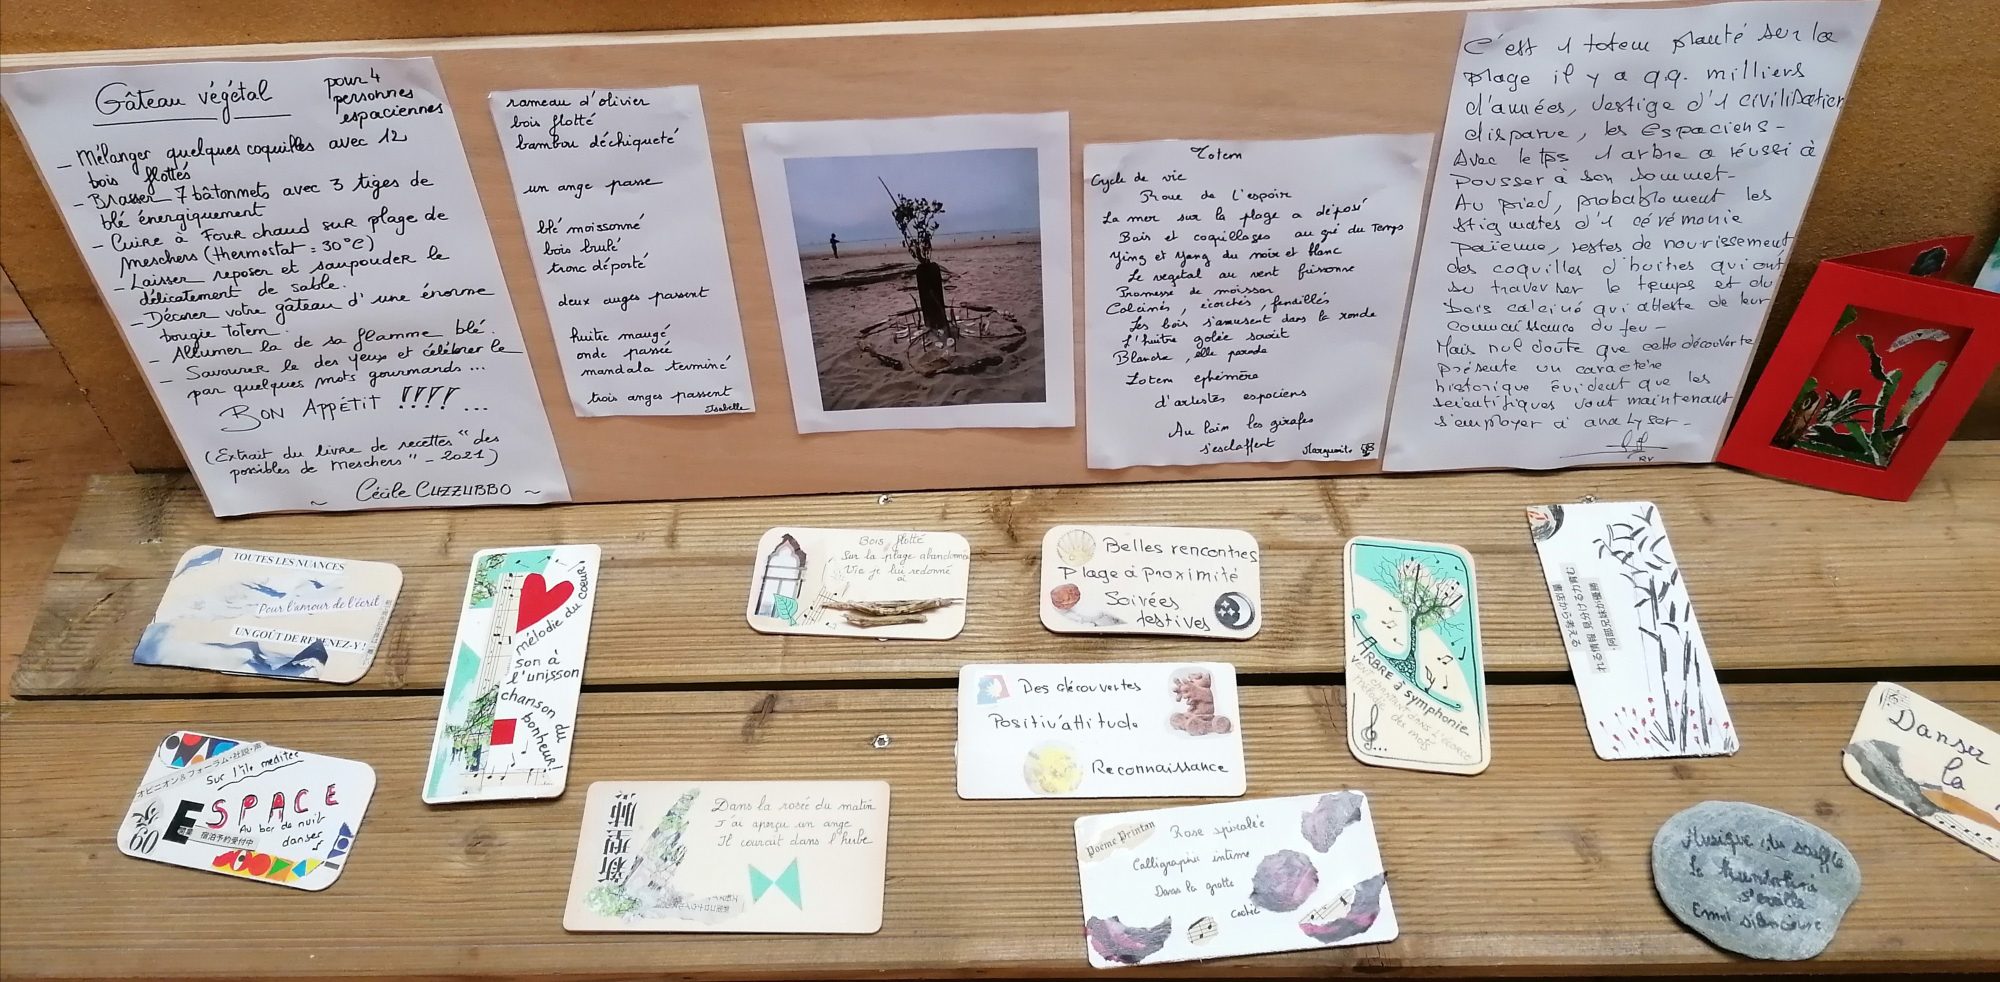 Gâteau végétal
pour 4
personnes
espaciennes
- Mélanger quelques coquilles avec 12
bois flottés
- Brasser 7 bâtonnets avec 3 tiges de
blé énergiquement
- Cuire à Four chaud sur plage de
Meschers (thermostat = 30°C)
- Laisser reposer et saupouder le
délicatement de sable.
- Décorer votre gâteau d'une énorme
bougie totem.
- Allumer la de sa flamme blé.
- Savourer le des yeux et célébrer le
par quelques mots gourmands...
BON APPÉTIT !!!! ...
(Extrait du livre de recettes "des
possibles de Meschers" - 2021)
~ Cécile CUZZUBBO ~
rameau d'olivier
bois flotté
bambou déchiqueté
un ange passe
blé moissonné
bois brulé
tronc déporté
deux anges passent
huître mangé
onde passée
mandala terminé
trois anges passent
Isabelle
Totem
Cycle de vie
Roue de l'espoir
La mer sur la plage a déposé
Bois et coquillages au gré du Temps
Ying et Yang du noir et blanc
Le végétal au vent frissonne
Promesse de moisson
Calcinés, écorchés, fendillés
Les bois s'amusent dans la ronde
L'huître golée savoit
Blanche, elle parade
Totem ephémère
d'artistes espaciens
Au loin les girafes
s'esclaffent
Marguerite
C'est 1 totem planté sur la
plage il y a q.q. milliers
d'années, vestige d'1 civilisation
disparue, les Espaciens -
Avec le tps 1 arbre a réussi à
pousser à son sommet -
Au pied, probablement les
stigmates d'1 cérémonie
païenne, restes de nourrissement
des coquilles d'huitres qui ont
su traverser le temps et du
bois calciné qui atteste de leur
connaissance du feu -
Mais nul doute que cette découverte
présente un caractère
historique évident que les
scientifiques vont maintenant
s'employer à analyser -
TOUTES LES NUANCES
Pour l'amour de l'écrit
UN GOÛT DE REVENEZ-Y !
mélodie du coeur!
son à
l'unisson
chanson du
bonheur!
Bois flotté
Sur la plage abandonné
Vie je lui redonne
Belles rencontres
Plage à Proximité
Soirées
festives
ARBRE à SYMPHONIE
VENT CHANTANT DANS L'ÉCORCE
Mélodie des mots
れる情報を見分ける力育む
書店から考える
Des découvertes
Positiv'attitude
Reconnaissance
Danser
la
オピニオン&フォーラム・社説・声
Sur l'île mediter
ESPACE
60
宿泊予約受付中
Au bar de nuit
danser
Dans la rosée du matin
J'ai aperçu un ange
Il courait dans l'herbe
Poème Printan
Rose spiralée
Calligraphie intime
Dans la grotte
Musique du souffle
s'éveille
Emoi silencieux